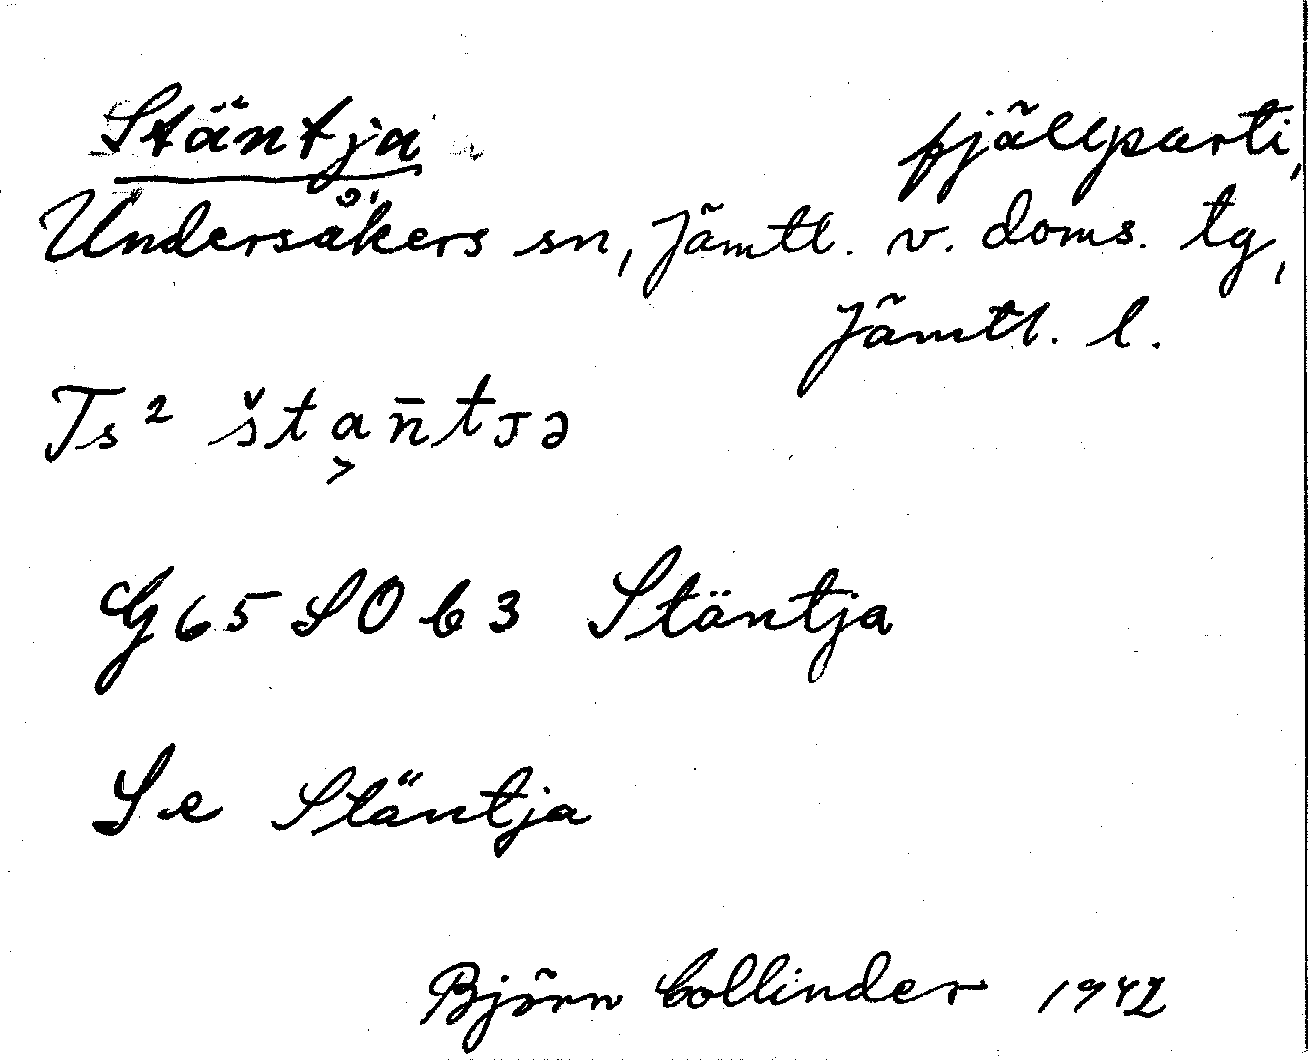 Stäntja fjällparti,
Undersåkers sn, Jämtl. v. doms. tg,
Jämtl. l.
Ts² šta̬n̄tᴊə
G65 SO b3 Stäntja
Se Stäntja
Björn Collinder 1942